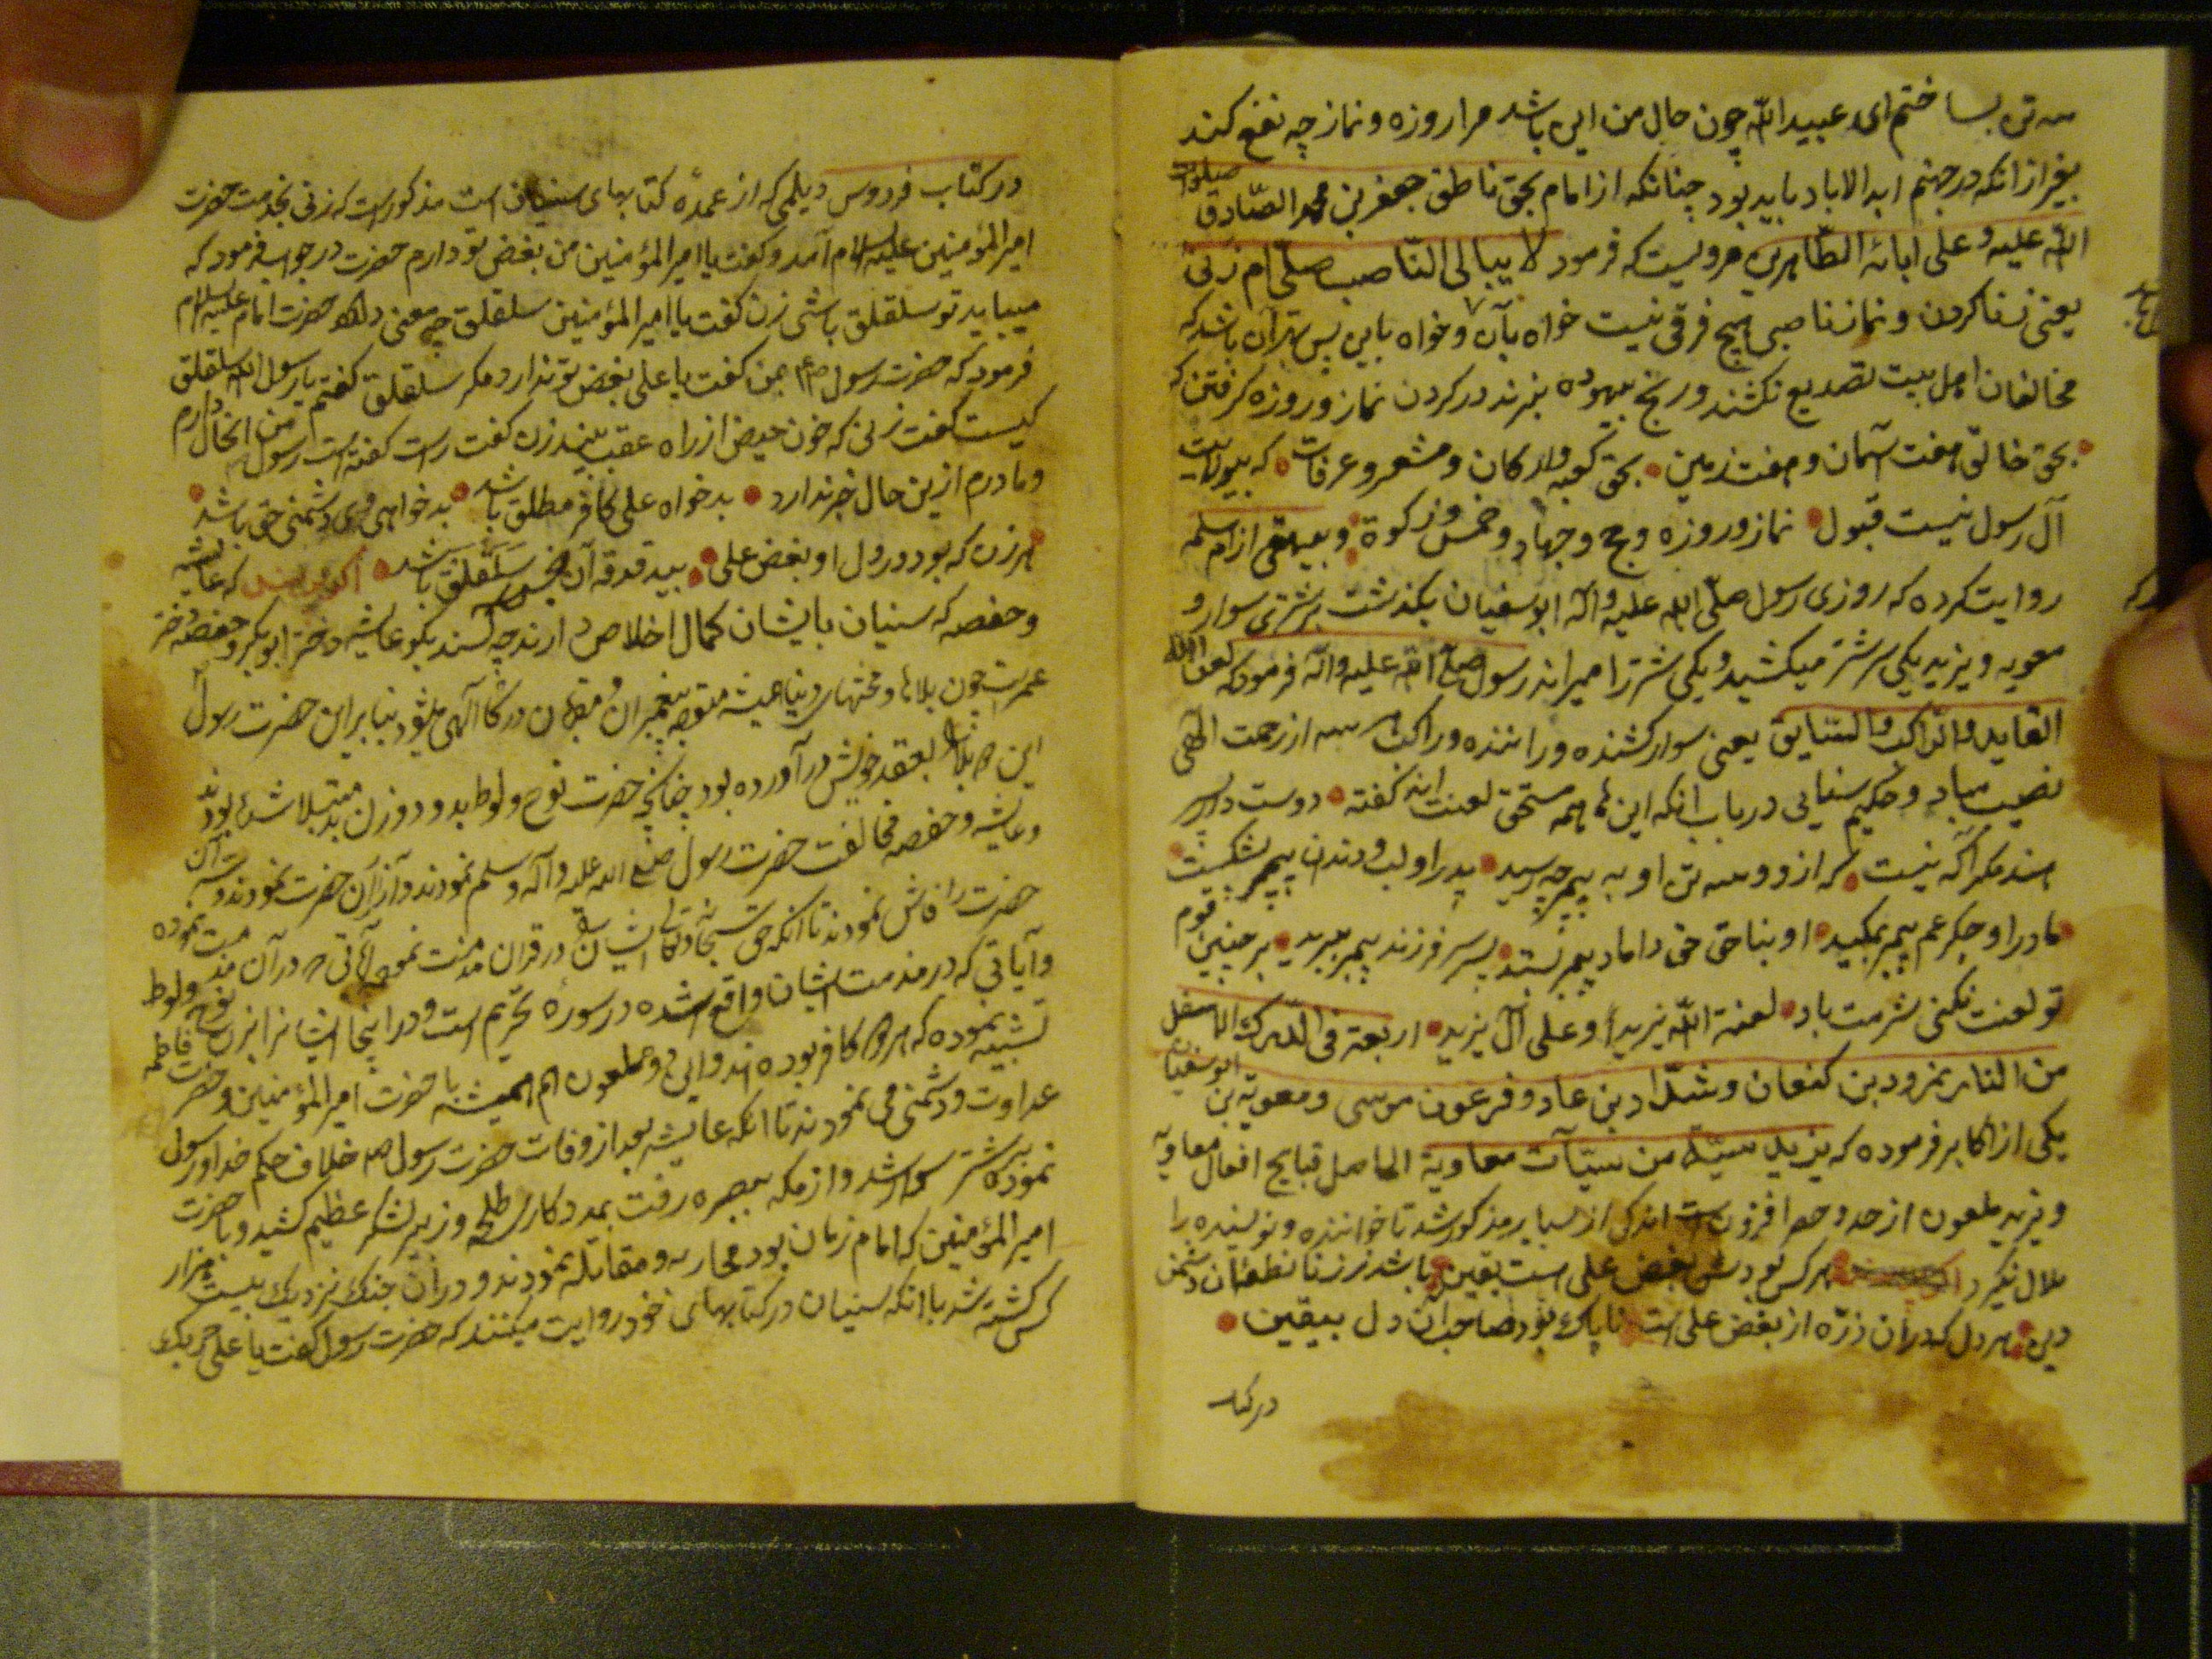 سه تن بساختم ای عبید الله چون حال من این باشد مرا روزه و نماز چه نفع کند
بغیر از انکه در جهنم ابد الاباد باید بود چنانکه از امام بحق ناطق جعفر بن محمد الصادق صلوات
الله علیه و علی ابائه الطاهرین مرویست که فرمود لا یبالی الناصب صلی ام زنی
یعنی زنا کردن و نماز ناصبی هیچ فرقی نیست خواه بآن و خواه باین پس بهتر آن باشد که
مخالفان اهل بیت تصدیع نکشند و رنج بیهوده نبرند در کردن نماز و روزه گرفتن که
بحق خالق هفت آسمان و هفت زمین بحق کعبه و ارکان و مشعر و عرفات که بیولایت
آل رسول نیست قبول نماز و روزه و حج و جهاد و خمس و زکوة و بیهقی از ام سلمه
روایت کرده که روزی رسول صلی الله علیه و آله ابوسفیان بگذشت بر شتری سوار و
معویه و یزید یکی سر شتر میکشید و یکی شتر را میراند رسول صلی الله علیه و اله فرمود که لعن الله
القاید و الراکب و السایق یعنی سوار کشنده و راننده و راکب هر سه از رحمت الهی
نصیب مباد و حکیم سنایی در باب انکه این همه مستحق لعنت اند گفته دوست دار پسر
هند مگر آگه نیست که از دو سه تن او به پیمبر چه رسید پدر او لب و دندن پیمبر بشکست
مادر او جگر عم پیمبر بمکید او بناحق حق داماد پیمبر بستد پسر فرزند پیمبر ببرید بر چنین قوم
تو لعنت نکنی شرمت باد لعنة الله یزیدا و علی آل یزید اربعة فی الدرک الاسفل
من النار نمرود بن کنعان و شداد بن عاد و فرعون موسی و معویة بن ابوسفیان
یکی از اکابر فرموده که یزید سیئة من سیآت معاویة الحاصل قبایح افعال معاویه
و یزید ملعون از حد و حصر افزونست اندکی از بسیار مذکور شد تا خواننده و نویسنده را
ملال نگیرد هر کس بود بغض علی است یقین باشد ز زنا نطفه آن دشمن
دین هر دل که در آن ذره از بغض علی است ناپاک بود صاحب آن دل بیقین
در کتاب
در کتاب فردوس دیلمی که از عمده کتابهای سنیان است مذکور است که زنی بخدمت حضرت
امیر المؤمنین علیه السلام آمد و گفت یا امیر المؤمنین من بغض تو دارم حضرت در جواب فرمود که
میباید تو سلقلق باشی زن گفت یا امیر المؤمنین سلقلق چه معنی دارد حضرت امام علیه السلام
فرمود که حضرت رسول بمن گفت یا علی بغض تو ندارد مگر سلقلق گفتم یا رسول الله سلقلق
کیست گفت زنی که خون حیض از راه عقب بیند زن گفت راست گفته است رسول من اینحال دارم
و مادرم ازین حال خبر ندارد بدخواه علی کافر مطلق باشد بدخواهی وی دشمنی حق باشد
هر زن که بود در دل او بغض علی سلقلق باشد که عایشه
و حفصه که سنیان بایشان کمال اخلاص دارند چه کسند بگو عایشه دختر ابوبکر و حفصه دختر
عمر است چون بلاها و محنتهای دنیا همیشه متوجه پیغمبران و مقربان درگاه الهی میشود بنابراین حضرت رسول
این بلا بعقد خویش در آورده بود چنانچه حضرت نوح و لوط بدو دو زن بد مبتلا شده بودند
و عایشه و حفصه مخالفت حضرت رسول صلی الله علیه و آله و سلم نمودند و آزار آن حضرت نمودند و سر آن
حضرت را فاش نمودند تا انکه حق سبحانه و تعالی ایشان در قران مذمت نموده
و آیاتی که در مذمت ایشان واقع شده در سورۀ تحریم است و در اینجا ایشانرا بزن نوح و لوط
تشبیه نموده که هر دو کافر بوده اند و این دو ملعون هم همیشه با حضرت امیر المؤمنین و حضرت فاطمه
عداوت و دشمنی می نمودند تا انکه عایشه بعد از وفات حضرت رسول خلاف حکم خدا و رسول
نموده بر شتر سوار شد و از مکه ببصره رفت بمددکاری طلحه و زبیر لشکر عظیم کشید و با حضرت
امیر المؤمنین که امام زمان بود محاربه و مقاتله نمودند و در آن جنگ نزدیک بیست هزار
کس کشته شد با انکه سنیان در کتابهای خود روایت میکنند که حضرت رسول گفت یا علی حربک